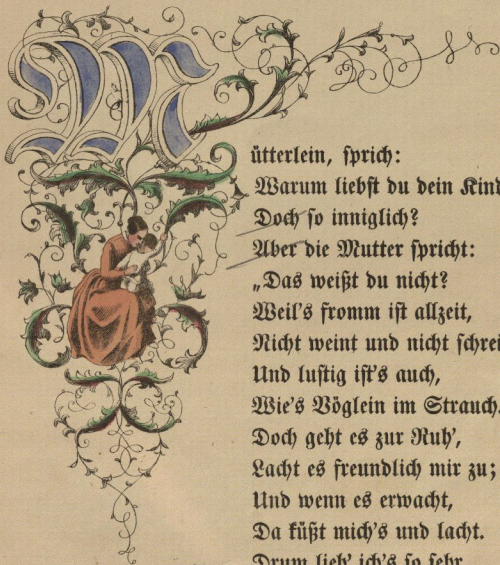 Mütterlein, sprich:
Warum liebst du dein Kind
Doch so inniglich?
Aber die Mutter spricht:
„Das weißt du nicht?
Weil's fromm ist allzeit,
Nicht weint und nicht schrei
Und lustig ist's auch,
Wie's Vöglein im Strauch.
Doch geht es zur Ruh',
Lacht es freundlich mir zu;
Und wenn es erwacht,
Da küßt mich's und lacht.
Drum lieb' ich's so sehr